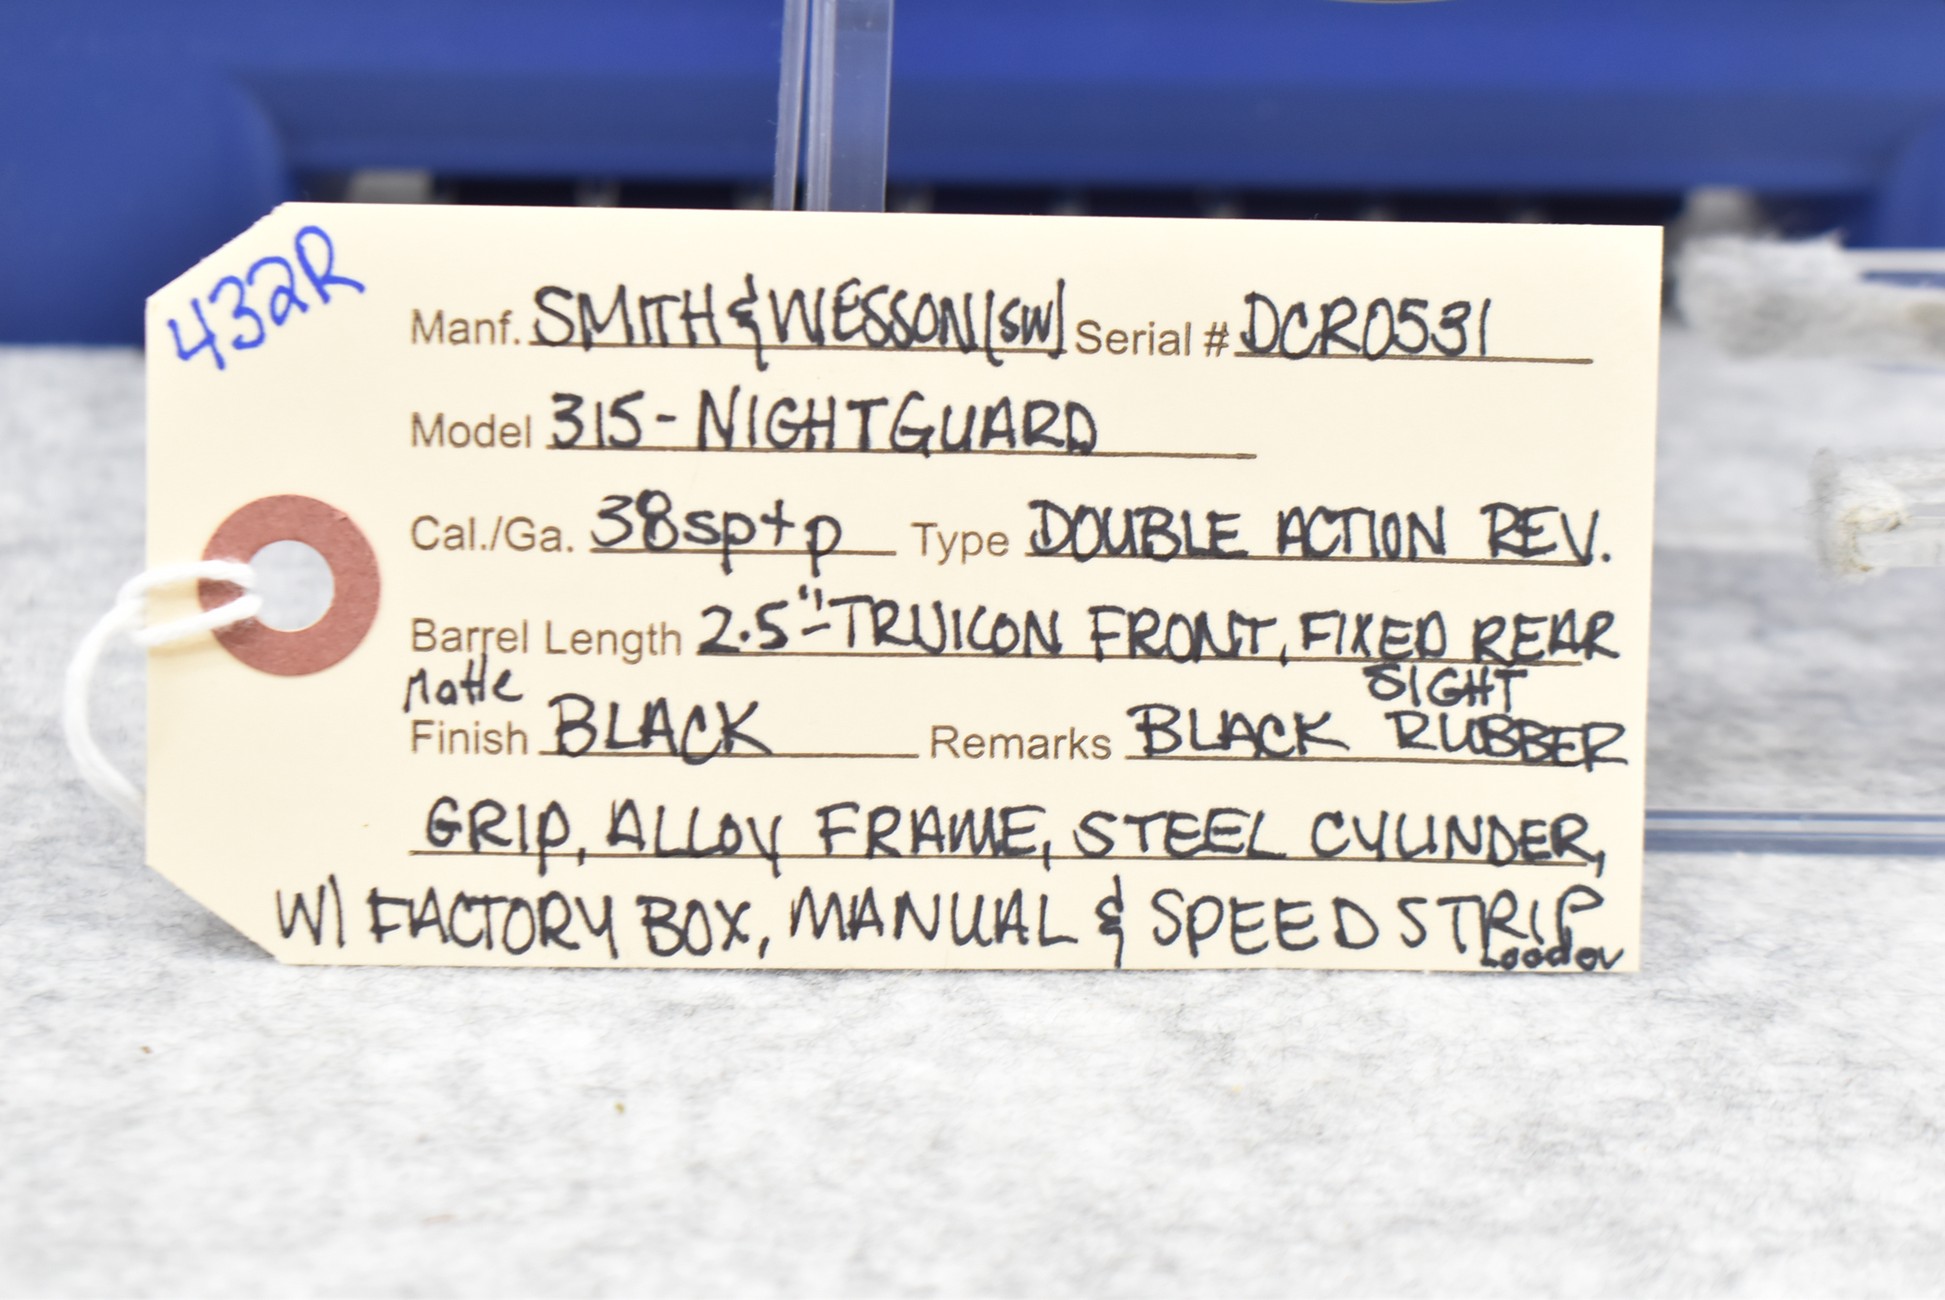 432R
Manf. SMITH & WESSON [SW] Serial # DCR0531
Model 315 - NIGHTGUARD
Cal./Ga. 38sp+p Type DOUBLE ACTION REV.
Barrel Length 2.5" - TRUICON FRONT, FIXED REAR
SIGHT
Matte
Finish BLACK Remarks BLACK RUBBER
GRIP, ALLOY FRAME, STEEL CYLINDER,
W/ FACTORY BOX, MANUAL & SPEED STRIP
Loader